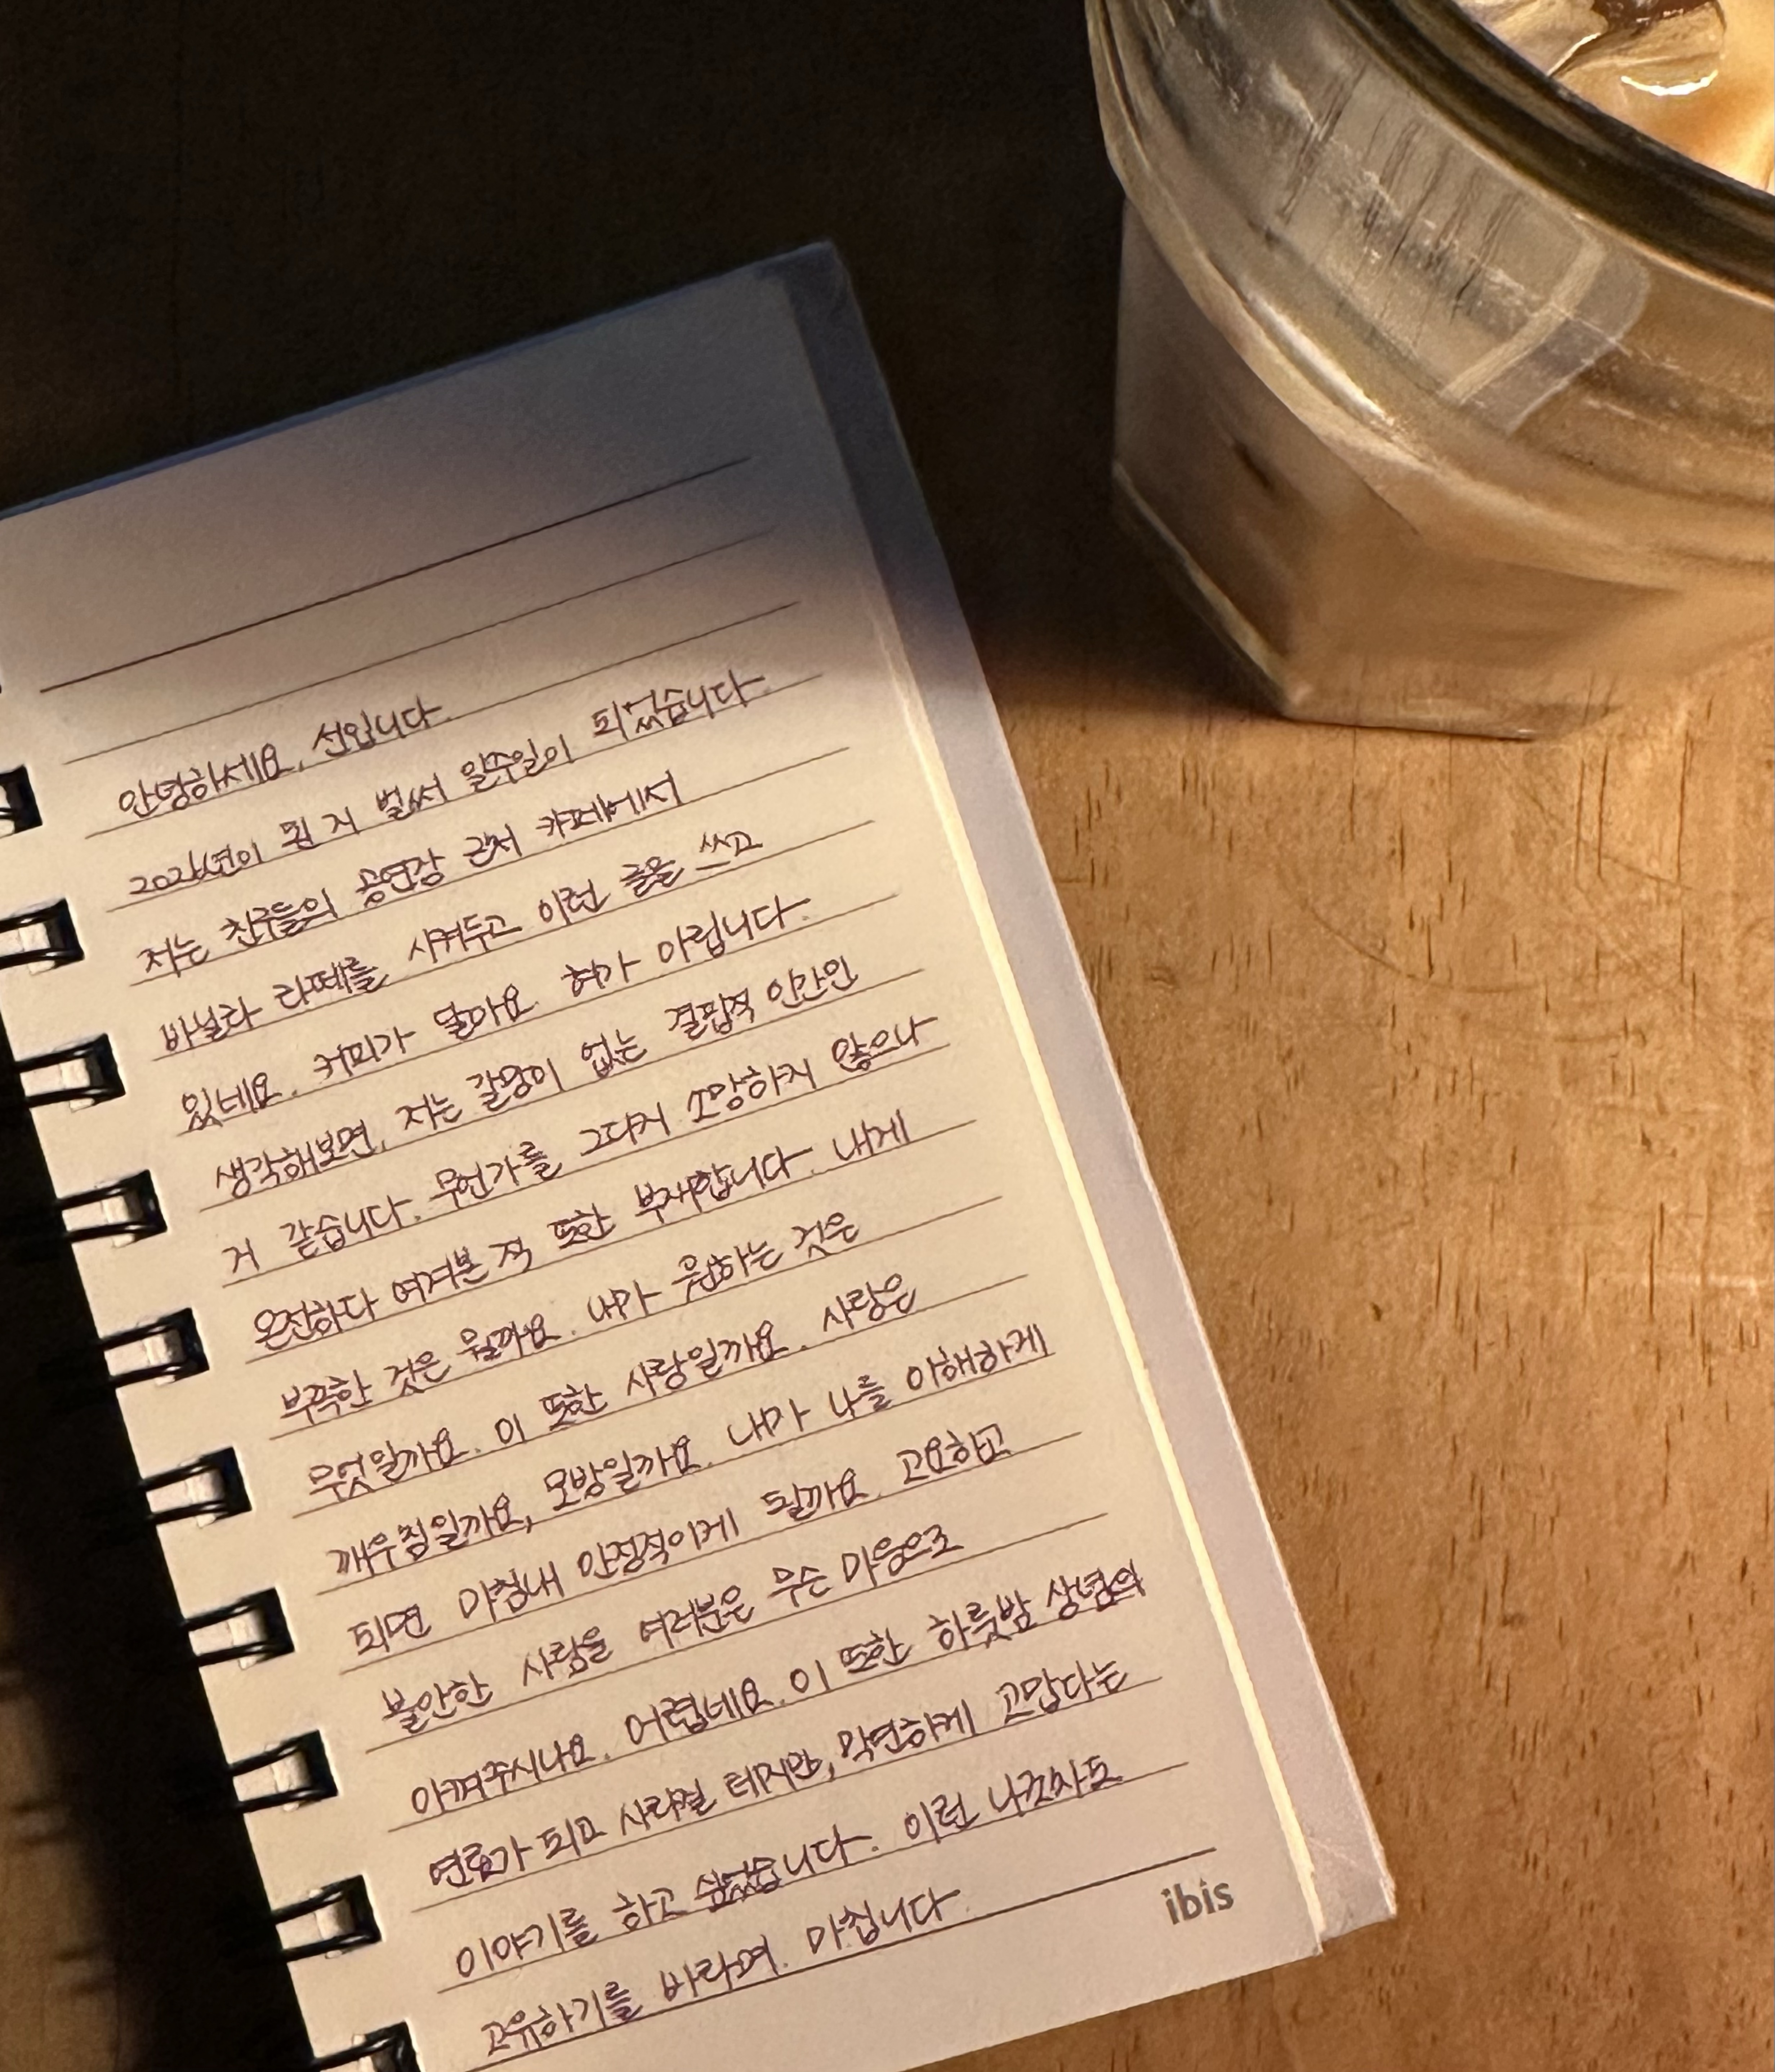 안녕하세요, 선입니다.
2024년이 된 지 벌써 일주일이 되었습니다.
저는 친구들의 공연장 근처 카페에서
바닐라 라떼를 시켜두고 이런 글을 쓰고
있네요. 커피가 달아요. 혀가 아립니다.
생각해보면, 저는 갈망이 없는 결핍적 인간인
거 같습니다. 무언가를 그다지 소망하지 않으나
온전하다 여겨본 적 또한 부재합니다. 내게
부족한 것은 뭘까요. 내가 원하는 것은
무엇일까요. 이 또한 사랑일까요. 사랑은
깨우침일까요, 모방일까요. 내가 나를 이해하게
되면 마침내 안정적이게 될까요. 고요하고
불안한 사람을 여러분은 무슨 마음으로
아껴주시나요. 어렵네요. 이 또한 하룻밤 상념의
연료가 되고 사라질 테지만, 막연하게 고맙다는
이야기를 하고 싶었습니다. 이런 나조차도
고유하기를 바라며. 마칩니다.
ibis